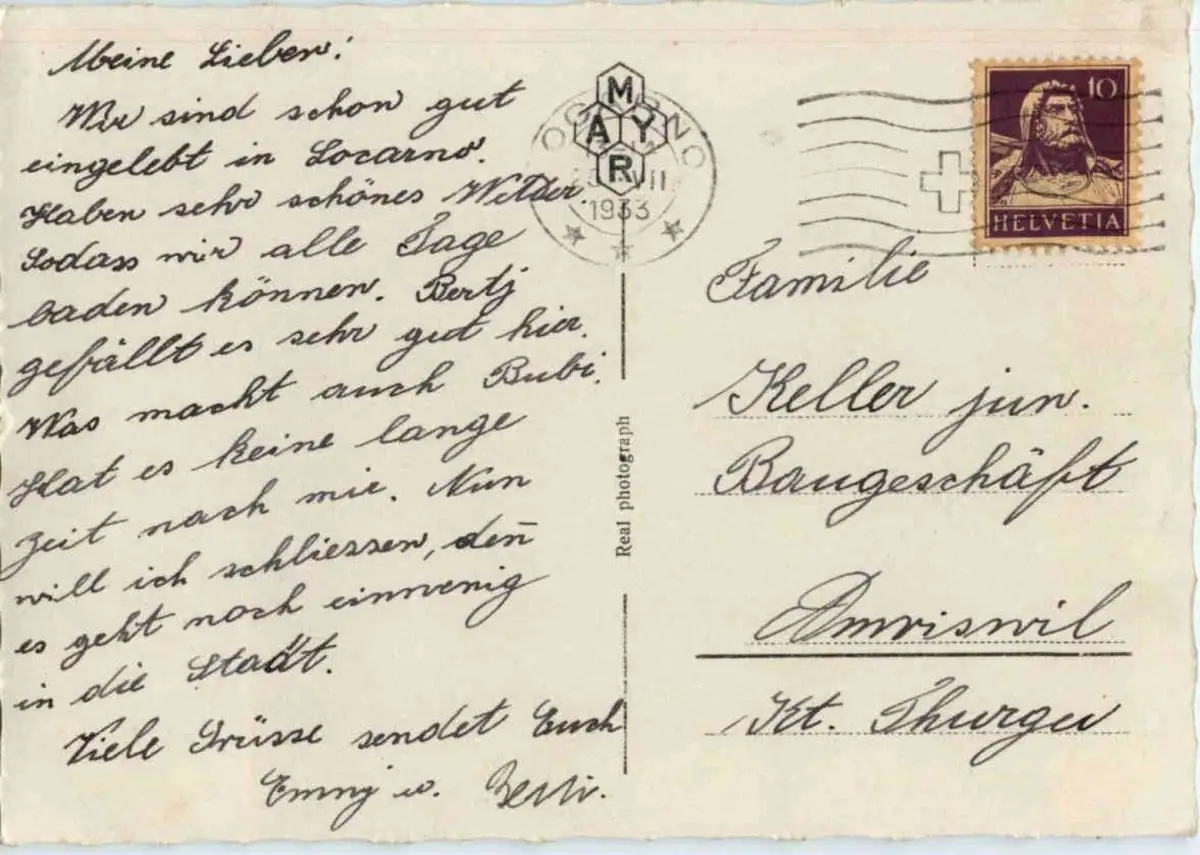 Meine Lieben!
Wir sind schon gut
eingelebt in Locarno.
Haben sehr schönes Wetter.
Sodass wir alle Tage
baden können. Bertj
gefällt es sehr gut hier.
Was macht auch Bubi.
Hat es keine lange
Zeit nach mir. Nun
will ich schliessen, den̅
es geht noch einwenig
in die Stadt.
Viele Grüsse sendet Euch
Emmy u. Berti.
MAYR
LOCARNO
VII
1933
10
HELVETIA
Real photograph
Familie
Keller jun.
Baugeschäft
Amriswil
Kt. Thurgau